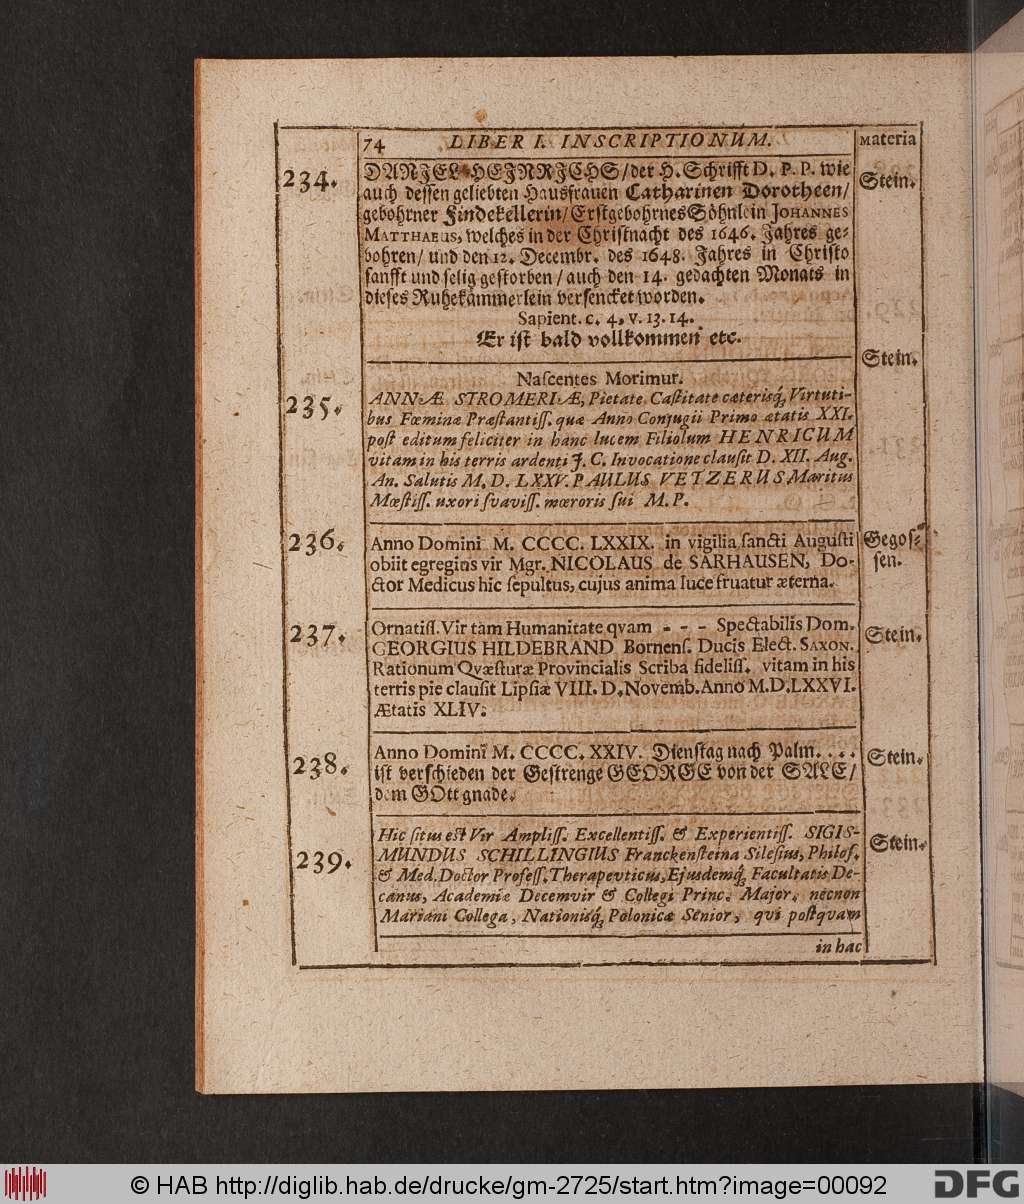 74 LIBER I. INSCRIPTIONUM. Materia
234. DANIEL HEINRICHS/ der H. Schrifft D. P. P. wie Stein.
auch dessen geliebten Hausfrauen Catharinen Dorotheen/
gebohrner Findekellerin/ Erstgebohrnes Söhnlein JOHANNES
MATTHAEUS, welches in der Christnacht des 1646. Jahres ge-
bohren/ und den 12. Decembr. des 1648. Jahres in Christo
sanfft und selig gestorben/ auch den 14. gedachten Monats in
dieses Ruhekämmerlein versencket worden.
Sapient. c. 4. v. 13. 14.
Er ist bald vollkommen etc.
Stein.
Nascentes Morimur.
235. ANNÆ STROMERIÆ, Pietate, Castitate cæterisq́; Virtuti-
bus Fœminæ Præstantiss. quæ Anno Conjugii Primo ætatis XXI.
post editum feliciter in hanc lucem Filiolum HENRICUM
vitam in his terris ardenti J. C. Invocatione clausit D. XII. Aug.
An. Salutis M. D. LXXV. PAULUS VETZERUS Maritus
Mœstiss. uxori suaviss. mœroris sui M. P.
236. Anno Domini M. CCCC. LXXIX. in vigilia sancti Augusti Gegos-
obiit egregius vir Mgr. NICOLAUS de SARHAUSEN, Do- sen.
ctor Medicus hic sepultus, cujus anima luce fruatur æterna.
237. Ornatiss. Vir tàm Humanitate qvam - - - Spectabilis Dom. Stein.
GEORGIUS HILDEBRAND Bornens. Ducis Elect. SAXON.
Rationum Qvæsturæ Provincialis Scriba fideliss. vitam in his
terris pie clausit Lipsiæ VIII. D. Novemb. Anno M.D.LXXVI.
Ætatis XLIV.
238. Anno Domini M. CCCC. XXIV. Dienstag nach Palm. . . . Stein.
ist verschieden der Gestrenge GEORGE von der SALE/
dem GOtt gnade.
239. Hic situs est Vir Ampliss. Excellentiss. & Experientiss. SIGIS- Stein.
MUNDUS SCHILLINGIUS Franckensteina Silesius, Philos.
& Med. Doctor Profess. Therapevticus, Ejusdemq́; Facultatis De-
canus, Academiæ Decemvir & Collegi Princ. Major. necnon
Mariani Collega, Nationisq́; Polonicæ Senior, qvi postqvam
in hac
© HAB http://diglib.hab.de/drucke/gm-2725/start.htm?image=00092
DFG